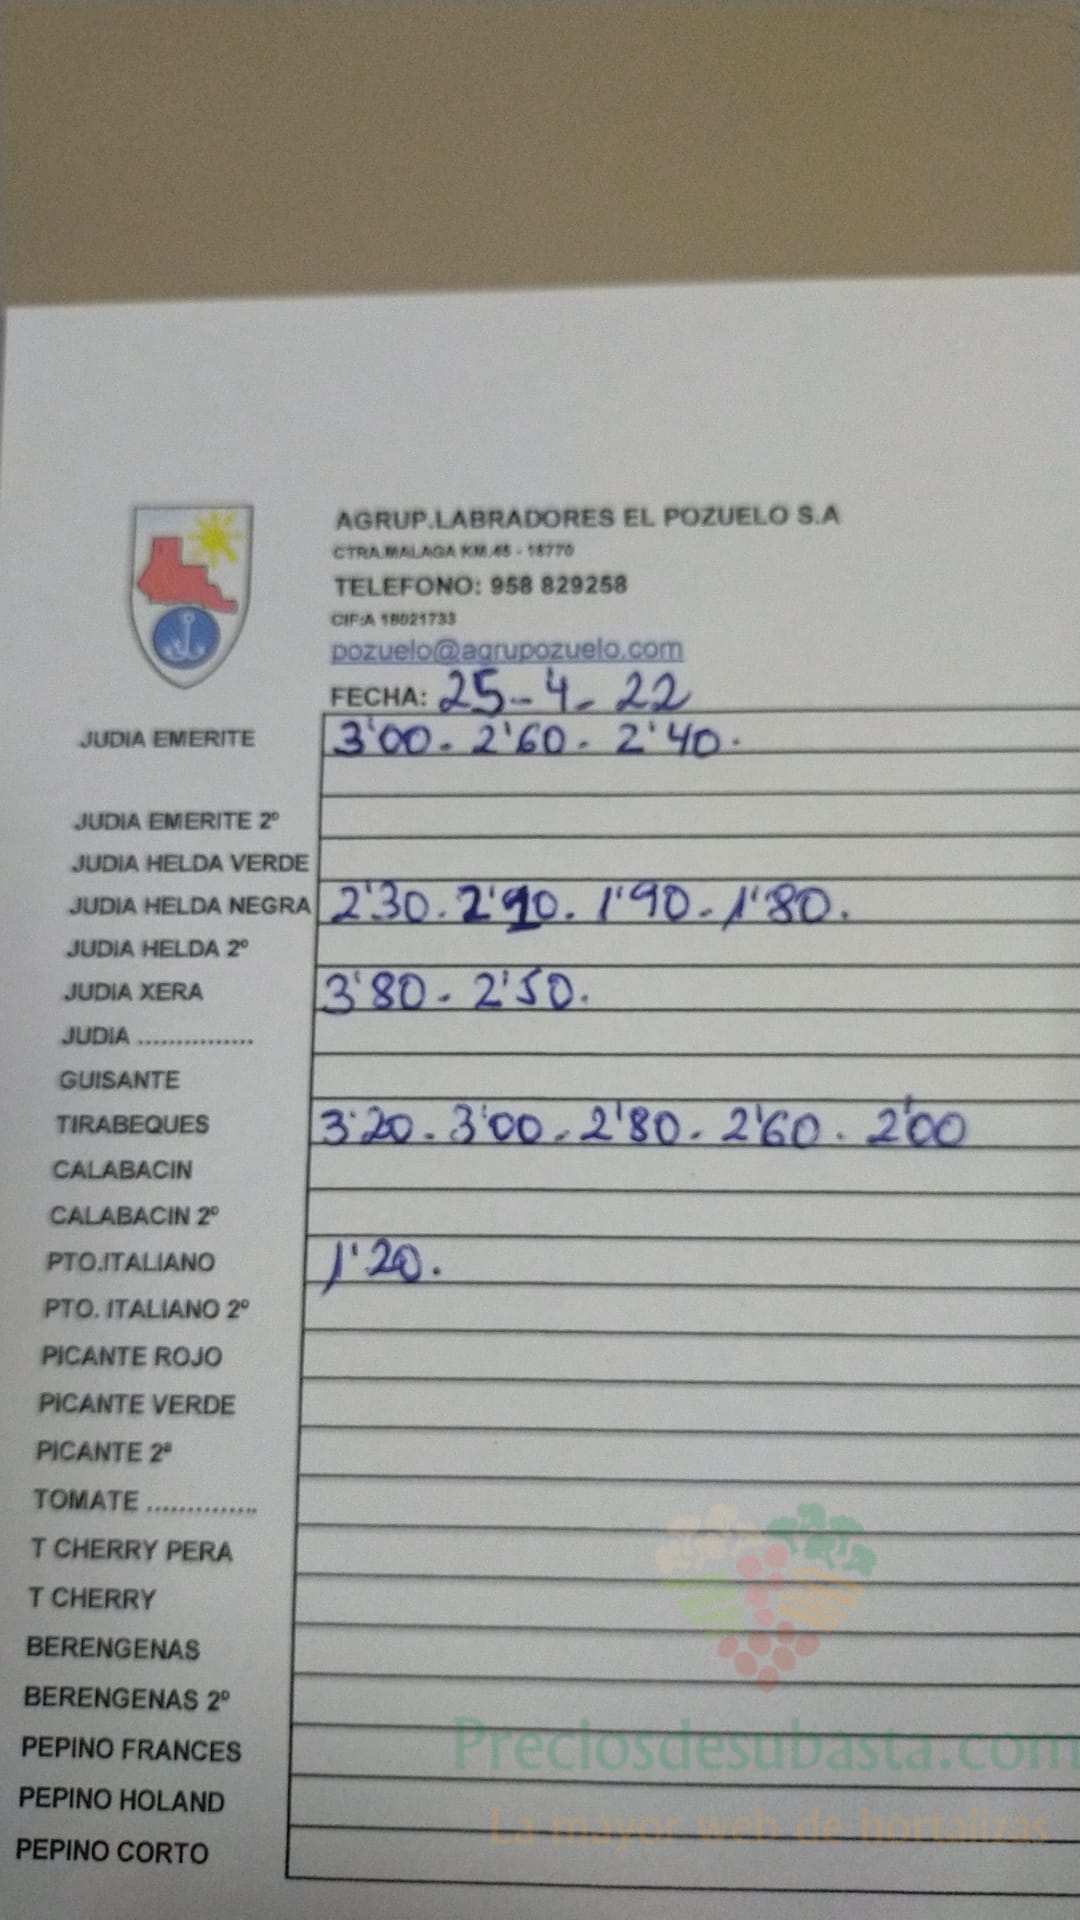 AGRUP.LABRADORES EL POZUELO S.A
CTRA.MALAGA KM.45 - 18770
TELEFONO: 958 829258
CIF:A 18021733
pozuelo@agrupozuelo.com
FECHA: 25-4-22
JUDIA EMERITE 3'00. 2'60. 2'40.
JUDIA EMERITE 2º
JUDIA HELDA VERDE
JUDIA HELDA NEGRA 2'30. 2'10. 1'90. 1'80.
JUDIA HELDA 2º
JUDIA XERA 3'80. 2'50.
JUDIA ...............
GUISANTE
TIRABEQUES 3'20. 3'00. 2'80. 2'60. 2'00
CALABACIN
CALABACIN 2º
PTO.ITALIANO 1'20.
PTO. ITALIANO 2º
PICANTE ROJO
PICANTE VERDE
PICANTE 2ª
TOMATE ..............
T CHERRY PERA
T CHERRY
BERENGENAS
BERENGENAS 2º
PEPINO FRANCES
PEPINO HOLAND
PEPINO CORTO
Preciosdesubasta.com
La mayor web de hortalizas